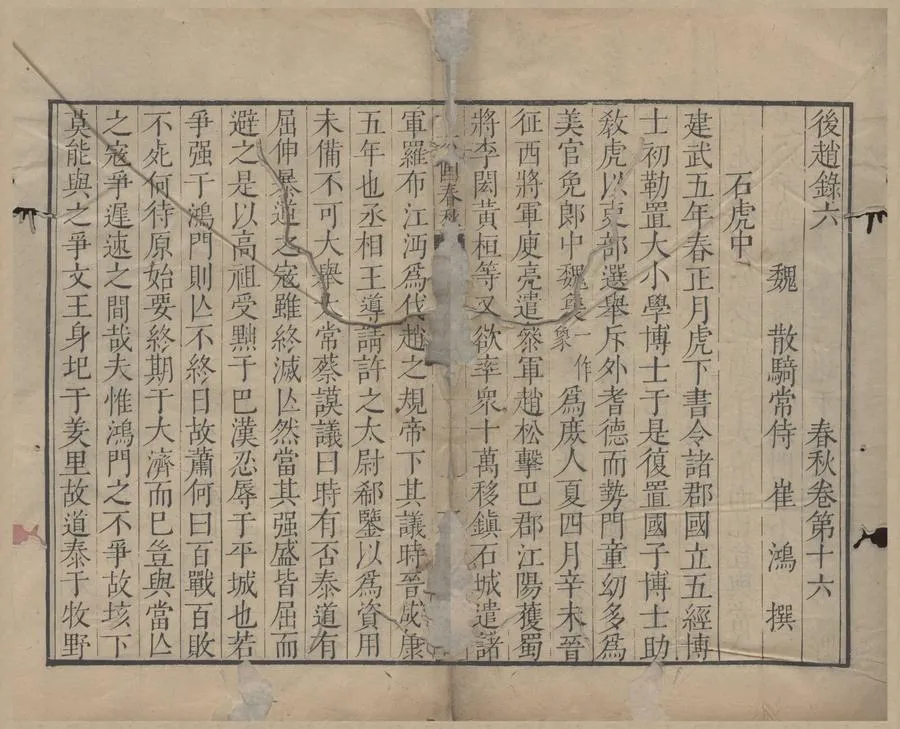 後趙錄六 春秋卷第十六
魏 散騎常侍 崔 鴻 撰
石虎中
建武五年春正月虎下書令諸郡國立五經博
士初勒置大小學博士于是復置國子博士助
敎虎以吏部選舉斥外耆德而勢門童幼多爲
美官免郎中魏㚟一作象爲庻人夏四月辛未晉
征西將軍庾亮遣叅軍趙松擊巴郡江陽獲蜀
將李閎黃桓等又欲率衆十萬移鎮石城遣諸
國春秋
軍羅布江沔爲伐趙之規帝下其議時晉咸康
五年也丞相王導請許之太尉郗鑒以爲資用
未備不可大舉太常蔡謨議曰時有否泰道有
屈伸暴逆之寇雖終滅亾然當其强盛皆屈而
避之是以高祖受黜于巴漢忍辱于平城也若
爭强于鴻門則亾不終日故蕭何曰百戰百敗
不死何待原始要終期于大濟而已豈與當亾
之寇爭遲速之間哉夫惟鴻門之不爭故垓下
莫能與之爭文王身圯于羑里故道泰于牧野